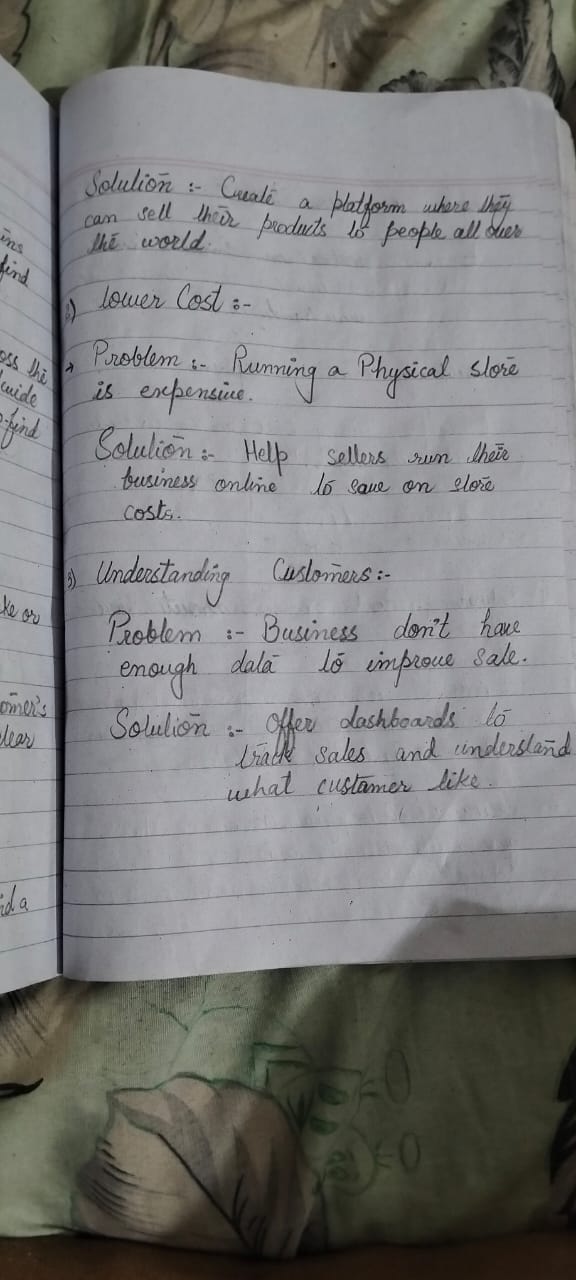 ins
find
oss the
cuide
-find
ke or
omer's
lear
id a
Solution :- Create a platform where they
can sell their products to people all over
the world.
2) lower Cost :-
→ Problem :- Running a Physical store
is expensive.
Solution :- Help sellers run their
business online to save on store
costs.
3) Understanding Customers :-
Problem :- Business don't have
enough data to improve sale.
Solution :- Offer dashboards to
track sales and understand
what custamer like.